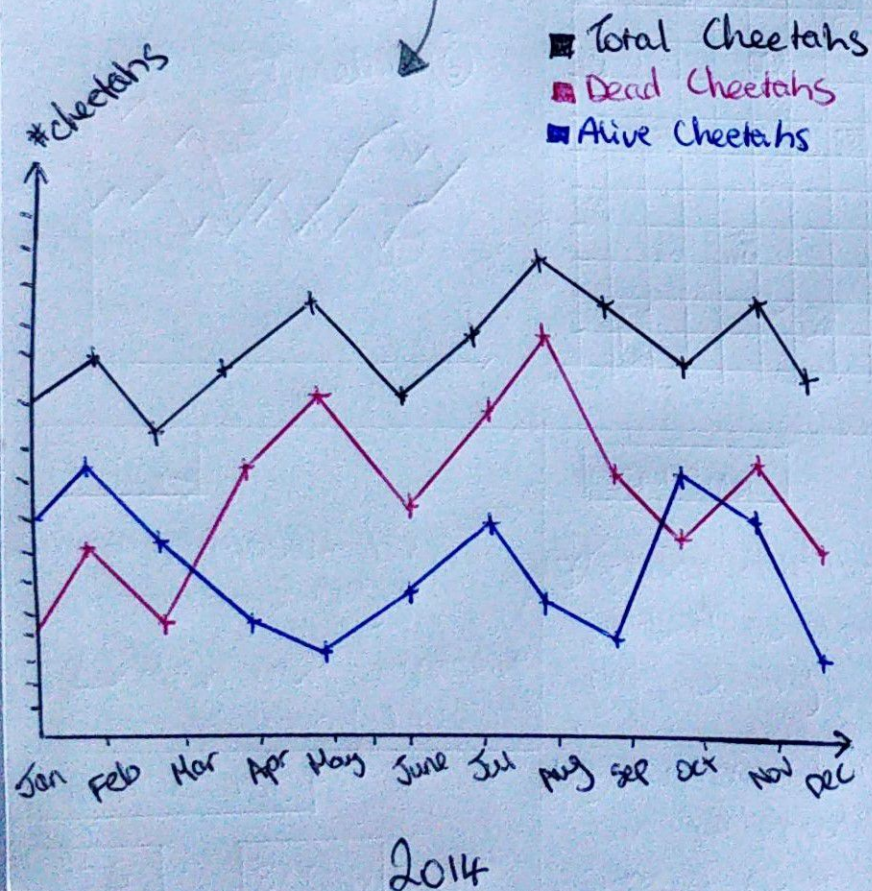 Total Cheetahs
Dead Cheetahs
Alive Cheetahs
#cheetahs
Jan Feb Mar Apr May June Jul Aug Sep Oct Nov Dec
2014